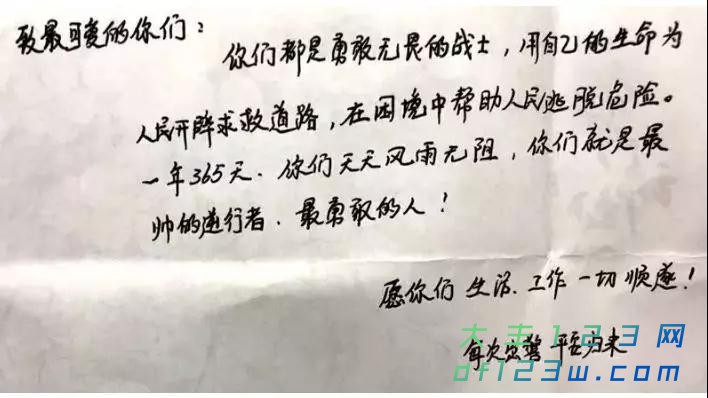 致最可爱的你们：
你们都是勇敢无畏的战士，用自己的生命为
人民开辟求救道路，在困境中帮助人民逃脱危险。
一年365天、你们天天风雨无阻，你们就是最
帅的逆行者、最勇敢的人！
愿你们 生活、工作一切顺遂！
每次出警 平安归来
大丰123网
df123w.com